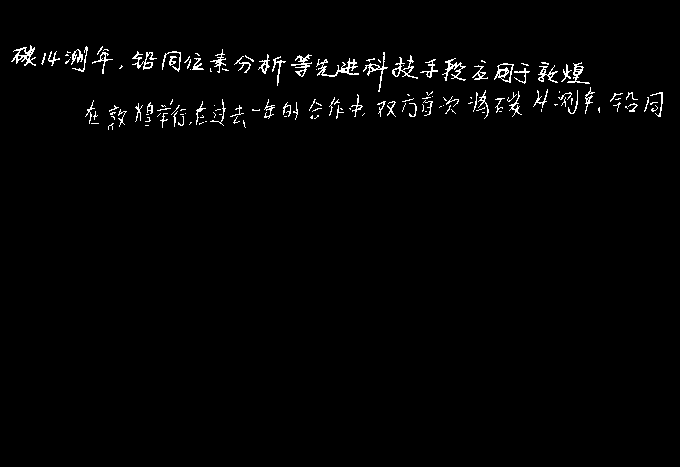 碳14测年,铅同位素分析等先进科技手段应用于敦煌
在敦煌举行,在过去一年的合作中,双方首次将碳14测年、铅同